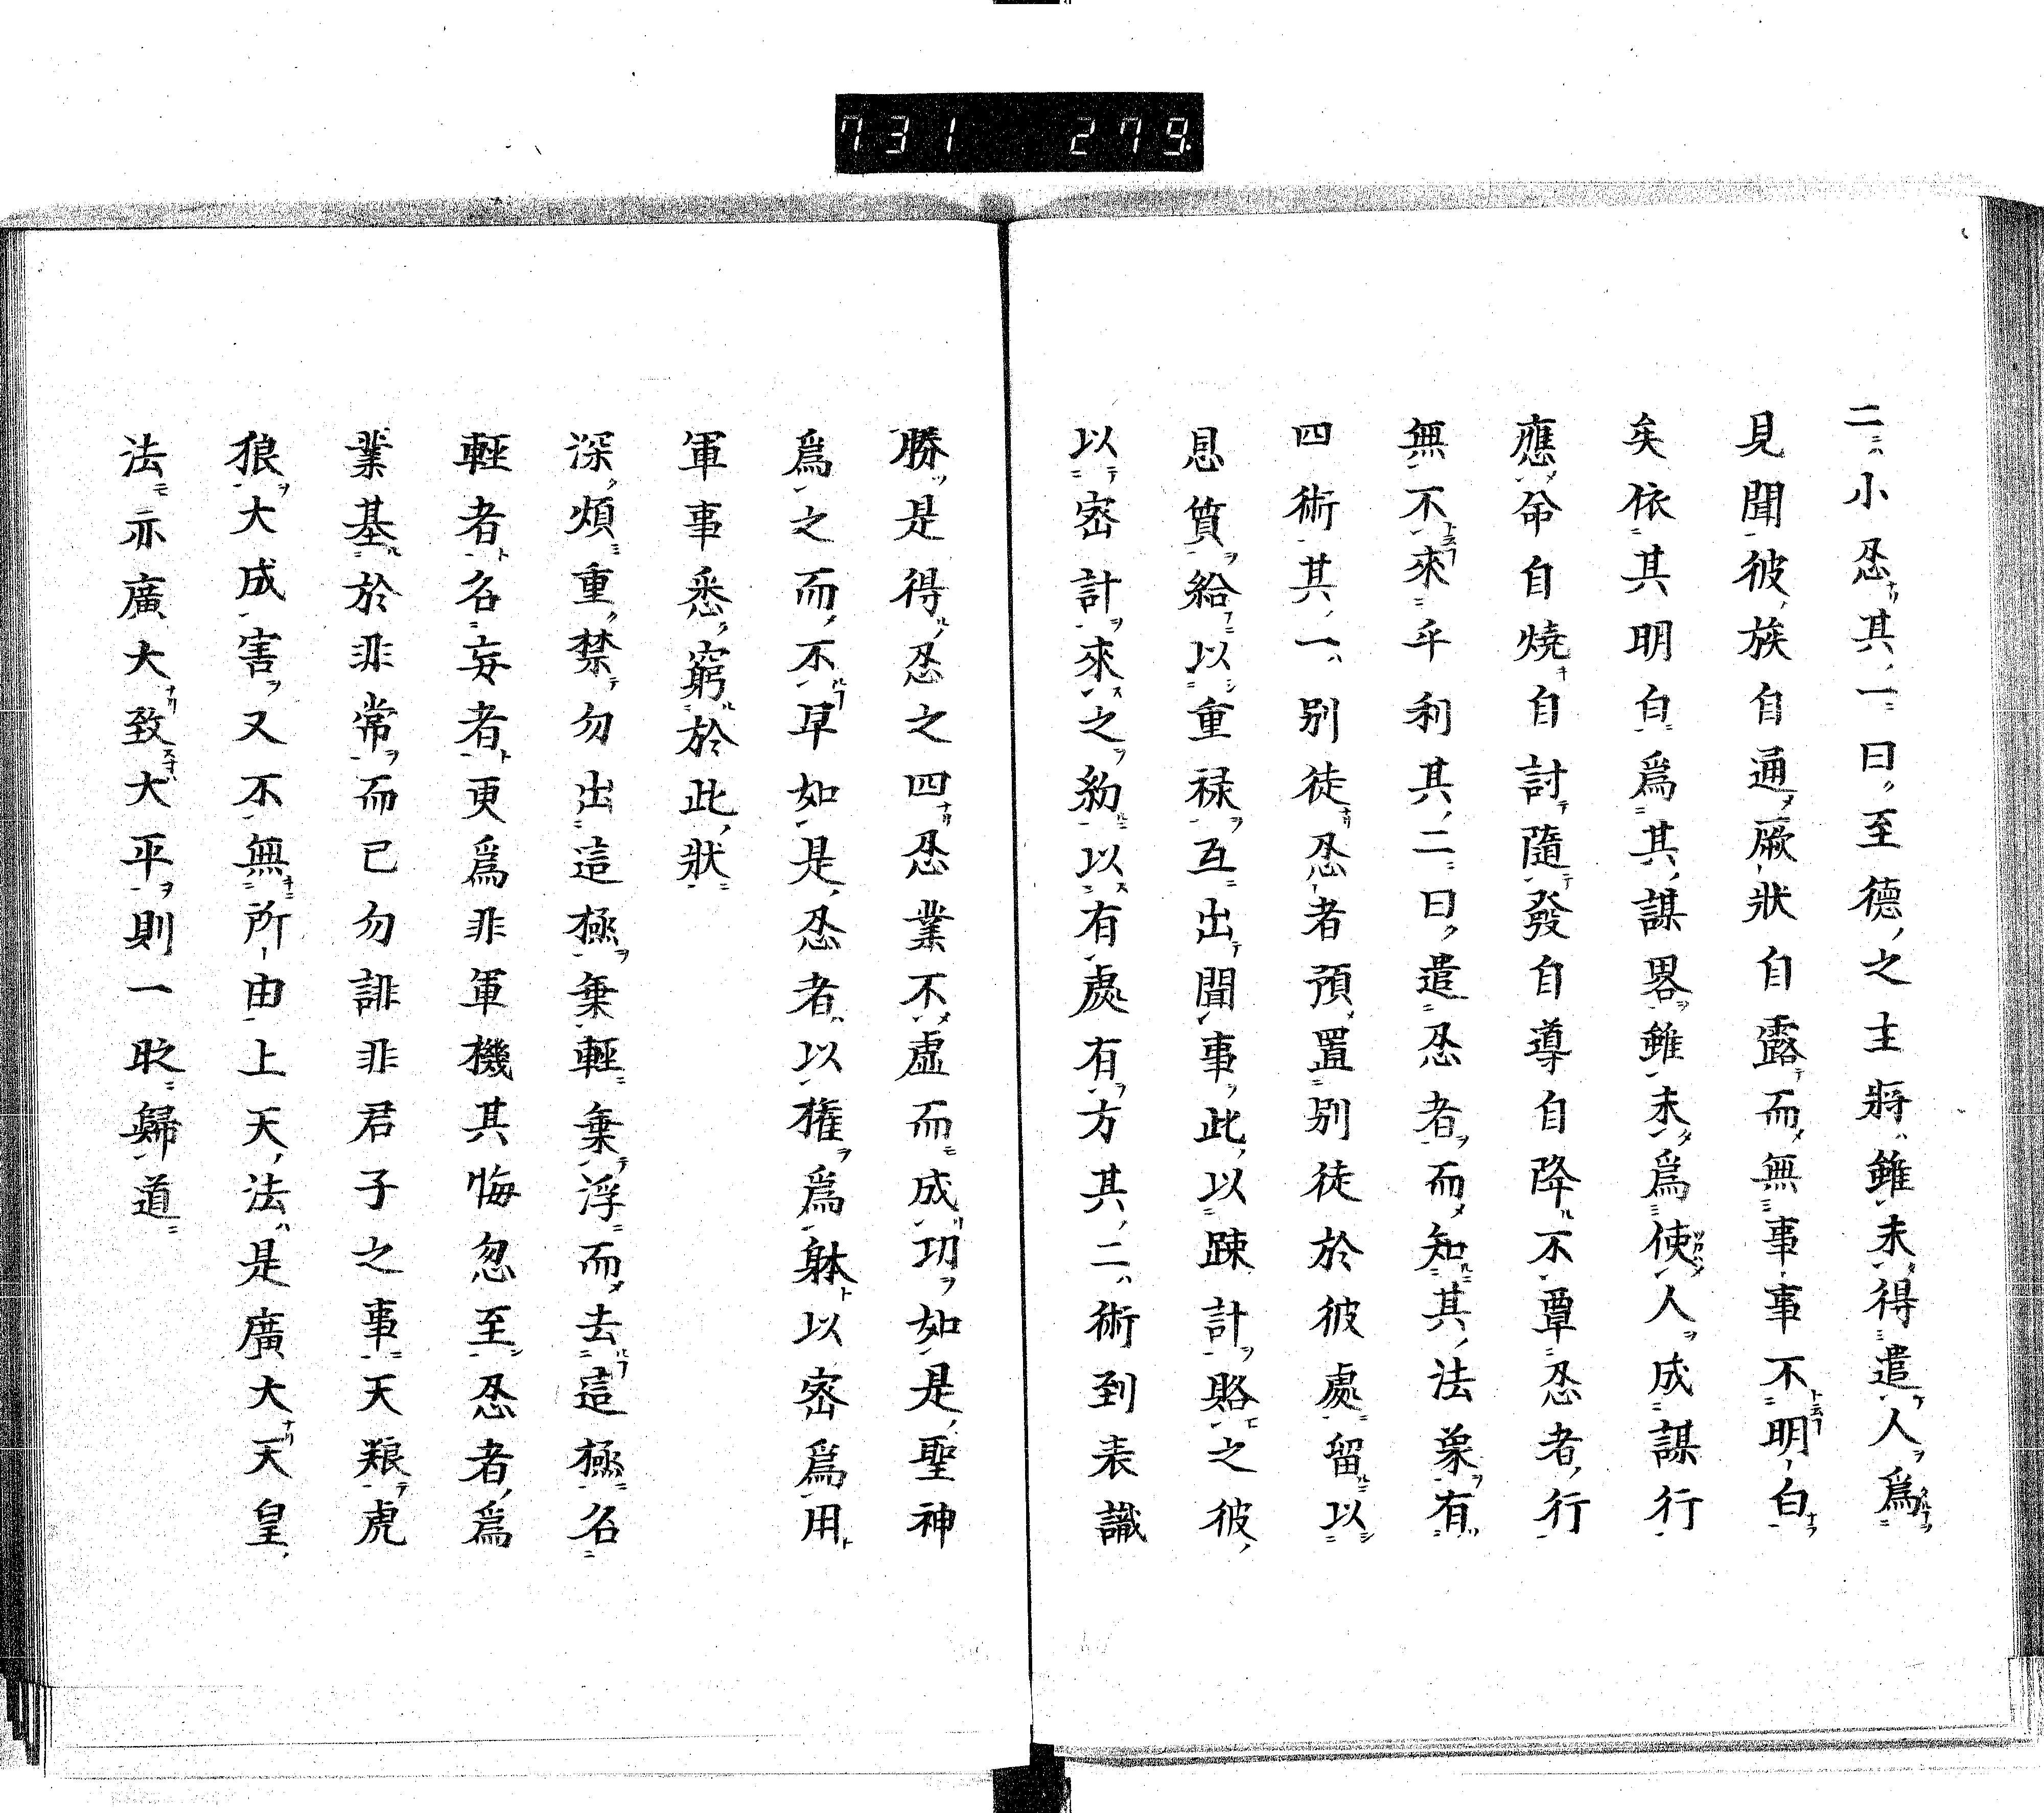 731 279
二小忍其一曰至德之主將雖未得遣人爲
見聞彼族自通厥狀自露而無事事不明白
矣依其明白爲其謀畧雖未爲使人成謀行
應命自燒自討隨發自導自降不覃忍者行
無不來乎利其二曰遣忍者而知其法象有
四術其一別徒忍者預置別徒於彼處留以
息質給以重禄互出聞事此以疎計賂之彼
以密計來之約以有處有方其二術到表識
勝是得忍之四忍業不虛而成功如是聖神
爲之而不早如是忍者以権爲躰以密爲用
軍事悉窮於此狀
深煩重禁勿出這極棄輕棄浮而去這極名
輕者名妄者更爲非軍機其悔忽至忍者爲
業基於非常而已勿誹非君子之事天粮虎
狼大成害又不無所由上天法是廣大天皇
法亦廣大致大平則一致歸道